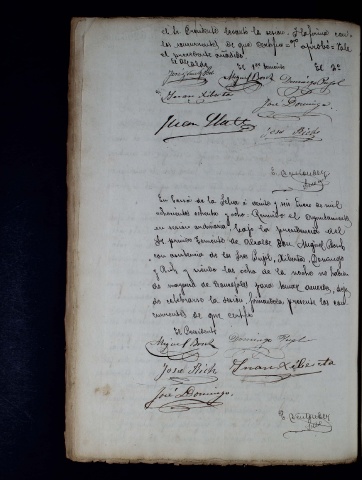 el Sr. Presidente levantó la sesion, y la firma con
los concurrentes de que certifico = aprobó = Vale
El Alcalde El 1er Teniente El 2º
Miguel Bosch Domingo Pujol
Juan Xiberta
José Domingo
Juan Llatt José Rich
En Sarriá de la Selva á veinte y seis Enero de mil
ochocientos ochenta y ocho. Reunido el Ayuntamiento
en sesion ordinaria, bajo la presidencia del
Sr. primer Teniente de Alcalde Don Miguel Bosch
con asistencia de los Sres Pujol, Xiberta, Domingo
y Rich y siendo las ocho de la noche no habien
do mayoría de Concejales para tomar acuerdos, dejó
de celebrarse la sesion, firmandola presente los con
currentes de que certifico
El Presidente
Miguel Bosch Domingo Pujol
José Rich Juan Xiberta
José Domingo